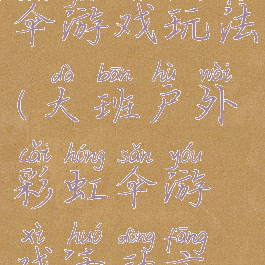 伞游戏玩法
dà bān hù wài
(大班户外
cǎi hóng sǎn yóu
彩虹伞游
xì huó dòng fāng